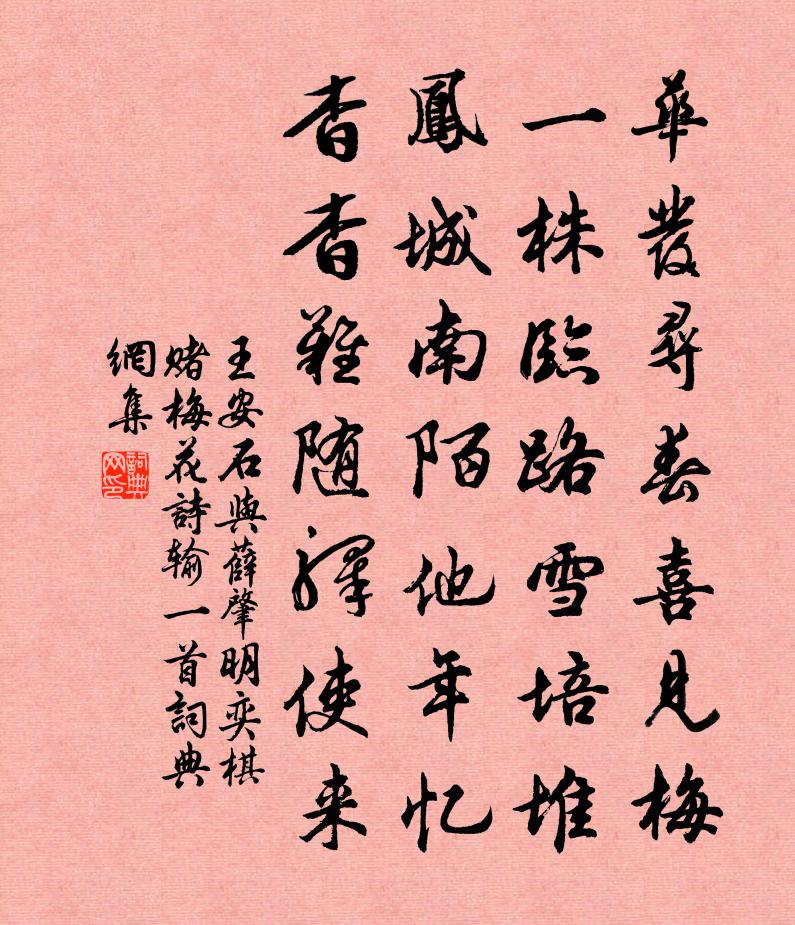 華發尋春喜見梅
一株臨路雪培堆
鳳城南陌他年忆
杳杳難随驛使来
王安石與薛肇明奕棋
賭梅花詩输一首詞典
網集
詞典
网印